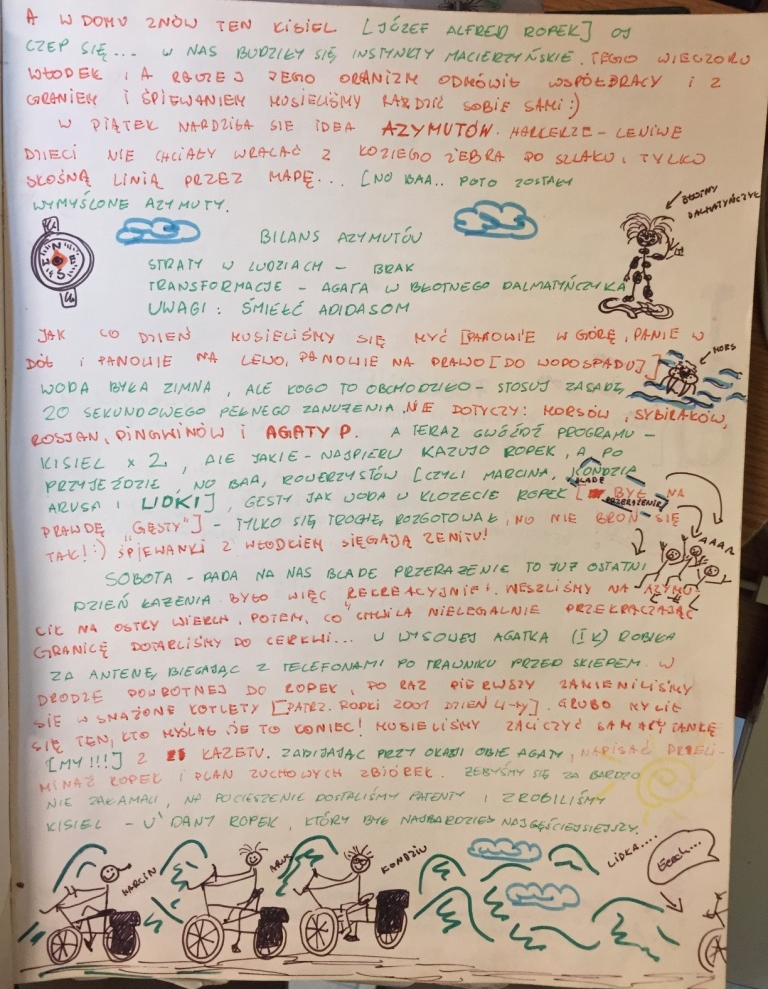 A W DOMU ZNÓW TEN KISIEL [JÓZEF ALFRED ROPEK] OJ
CZEP SIĘ... W NAS BUDZIŁY SIĘ INSTYNKTY MACIERZYŃSKIE. TEGO WIECZORU
WŁODEK I A RACZEJ JEGO ORGANIZM ODMÓWIŁ WSPÓŁPRACY I Z
GRANIEM I ŚPIEWANIEM MUSIELIŚMY RADZIĆ SOBIE SAMI :)
W PIĄTEK NARDZIŁA SIĘ IDEA AZYMUTÓW. HARCERZE - LENIWE
DZIECI NIE CHCIAŁY WRACAĆ Z KOZIEGO ŻEBRA PO SZLAKU, TYLKO
SKOŚNĄ LINIĄ PRZEZ MAPĘ... [NO BAA.. POTO ZOSTAŁY
WYMYŚLONE AZYMUTY.
BŁOTNY
DALMATYŃCZYK
N E S
BILANS AZYMUTÓW
STRATY W LUDZIACH - BRAK
TRANSFORMACJE - AGATA W BŁOTNEGO DALMATYŃCZYKA
UWAGI : ŚMIEŁĆ ADIDASOM
JAK CO DZIEŃ MUSIELIŚMY SIĘ MYĆ [PANOWIE W GÓRĘ, PANIE W
DÓŁ I PANOWIE NA LEWO, PANOWIE NA PRAWO [DO WODOSPADU].]
MORS
WODA BYŁA ZIMNA, ALE KOGO TO OBCHODZIŁO - STOSUJ ZASADĘ
20 SEKUNDOWEGO PEŁNEGO ZANUŻENIA. NIE DOTYCZY: MORSÓW, SYBIRAKÓW,
ROSJAN, PINGWINÓW I AGATY P. A TERAZ GWÓŹDŹ PROGRAMU -
KISIEL x 2, ALE JAKIE - NAJPIERW KAZUJO ROPEK, A PO
PRZYJEŹDZIE, NO BAA, ROWERZYSTÓW [CZYLI MARCINA, KONDZIA,
ARUSA I LIDKI], GĘSTY JAK WODA W KLOZECIE ROPEK [BYŁ NA
BLADE
PRZERAŻENIE
PRAWDĘ "GĘSTY"] - TYLKO SIĘ TROCHĘ ROZGOTOWAŁ, NO NIE BROŃ SIĘ
TAK! :) ŚPIEWANKI Z WŁODKIEM SIĘGAJĄ ZENITU!
AAAA
SOBOTA - PADA NA NAS BLADE PRZERAŻENIE TO JUŻ OSTATNI
DZIEŃ ŁAŻENIA. BYŁO WIĘC REKREACYJNIE. WESZLIŚMY NA AZYMU-
CIK NA OSTRY WIERCH, POTEM, CO CHWILA NIELEGALNIE PRZEKRACZAJĄC
GRANICĘ DOTARLIŚMY DO CERKWI... W WYSOWEJ AGATKA (I K) ROBIŁA
ZA ANTENĘ, BIEGAJĄC Z TELEFONAMI PO TRAWNIKU PRZED SKLEPEM. W
DRODZE POWROTNEJ DO ROPEK, PO RAZ PIERWSZY ZAMIENILIŚMY
SIĘ W SMAŻONE KOTLETY [PATRZ. ROPKI 2001 DZIEŃ 4-TY]. GRUBO MYLIŁ
SIĘ TEN, KTO MYŚLAŁ ŻE TO KONIEC! MUSIELIŚMY ZALICZYĆ SAMARYTANKĘ
[MY!!!] Z KAZETU. ZABIJAJĄC PRZY OKAZJI OBIE AGATY, NAPISAĆ PRZELI-
MINAŻ ROPEK I PLAN ZUCHOWYCH ZBIÓREK. ŻEBYŚMY SIĘ ZA BARDZO
NIE ZAŁAMALI, NA POCIESZENIE DOSTALIŚMY PATENTY I ZROBILIŚMY
KISIEL - U'DANY ROPEK, KTÓRY BYŁ NAJBARDZIEJ NAJGĘŚCIEJSIEJSZY.
MARCIN
ARUS
KONDZIU
LIDKA....